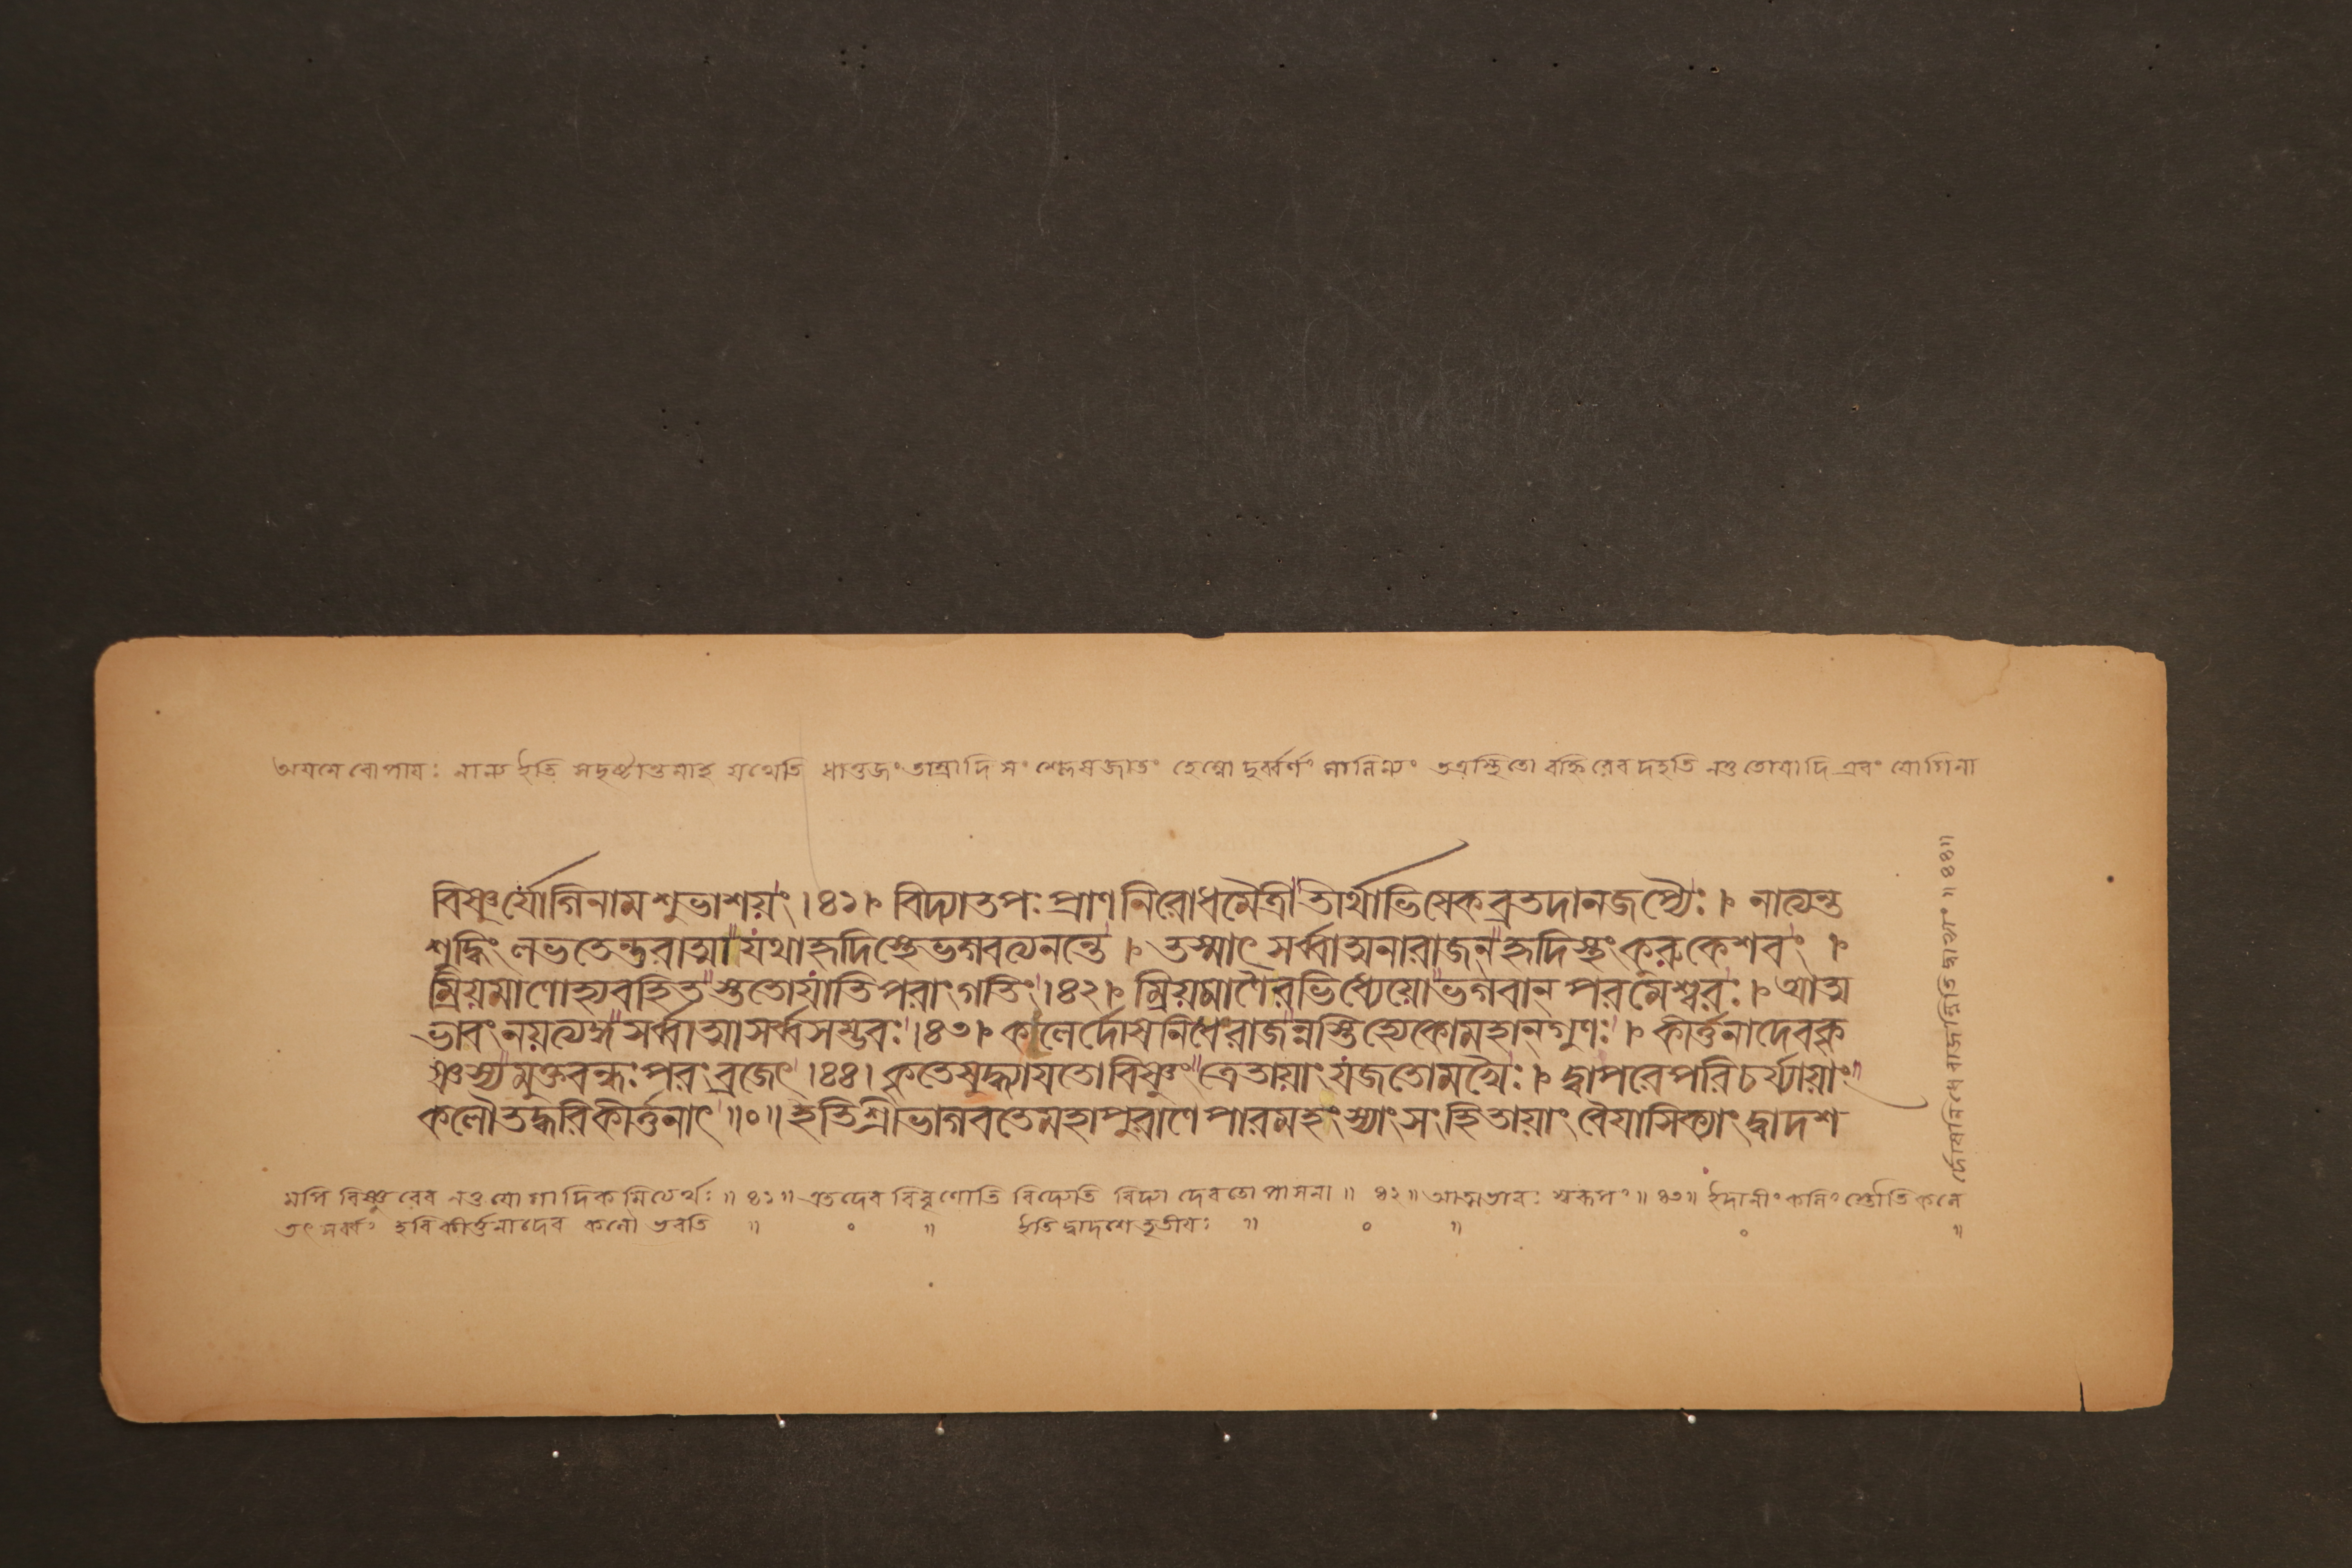 অয়মেবোপায়ঃ নান্য ইতি সদৃষ্টান্তমাহ যথেতি ধাতুজং তাম্রাদি সংশ্লেষজাতং হেম্নো দুর্ব্বর্ণং মালিন্যং তত্রস্থিতো বহ্নিরেব দহতি নতু তোয়াদি এবং যোগিনা
বিষ্ণুর্যোগিনামশুভাশয়ং।৪১। বিদ্যাতপঃপ্রাণনিরোধমৈত্রীতীর্থাভিষেকব্রতদানজপ্যৈঃ। নাত্যন্ত
শুদ্ধিং লভতেন্তরাত্মা যথাহৃদিস্থেভগবত্যনন্তে। তস্মাৎ সর্ব্বাত্মনারাজন্ হৃদিস্থং কুরুকেশবং।
ম্রিয়মাণোহ্যবহিত স্ততোযাতিপরাংগতিং।৪২। ম্রিয়মাণৈরভিধ্যেয়ো ভগবান্ পরমেশ্বরঃ। আত্ম
ভাবংনয়ত্যঙ্গ সর্ব্বাত্মাসর্ব্বসম্ভবঃ।৪৩। কলের্দোষনিধেরাজন্নস্তিহ্যেকোমহান্গুণঃ। কীর্ত্তনাদেবকৃ
ষ্ণস্য মুক্তবন্ধঃপরংব্রজেৎ।৪৪। কৃতেযদ্ধ্যায়তোবিষ্ণুং ত্রেতায়াংযজতোমখৈঃ। দ্বাপরেপরিচর্য্যায়াং
কলৌতদ্ধরিকীর্ত্তনাৎ॥০॥ ইতিশ্রীভাগবতেমহাপুরাণেপারমহংস্যাংসংহিতায়াং বৈয়াসিক্যাংদ্বাদশ
মপি বিষ্ণুরেব নতু যোগাদিকমিত্যর্থঃ॥৪১॥ এতদেব বিবৃণোতি বিদ্যেতি বিদ্যা দেবতোপাসনা॥ ৪২॥ আত্মভাবঃ স্বরূপং॥৪৩॥ ইদানীং কলিং স্তৌতি কলে
র্দোষনিধে রাজন্নিতি দ্বাভ্যাং॥৪৪॥
তৎ সর্ব্বং হরিকীর্ত্তনাদেব কলৌ ভবতি ॥ ০ ॥ ইতি দ্বাদশে তৃতীয়ঃ ॥ ০ ॥ ০ ॥